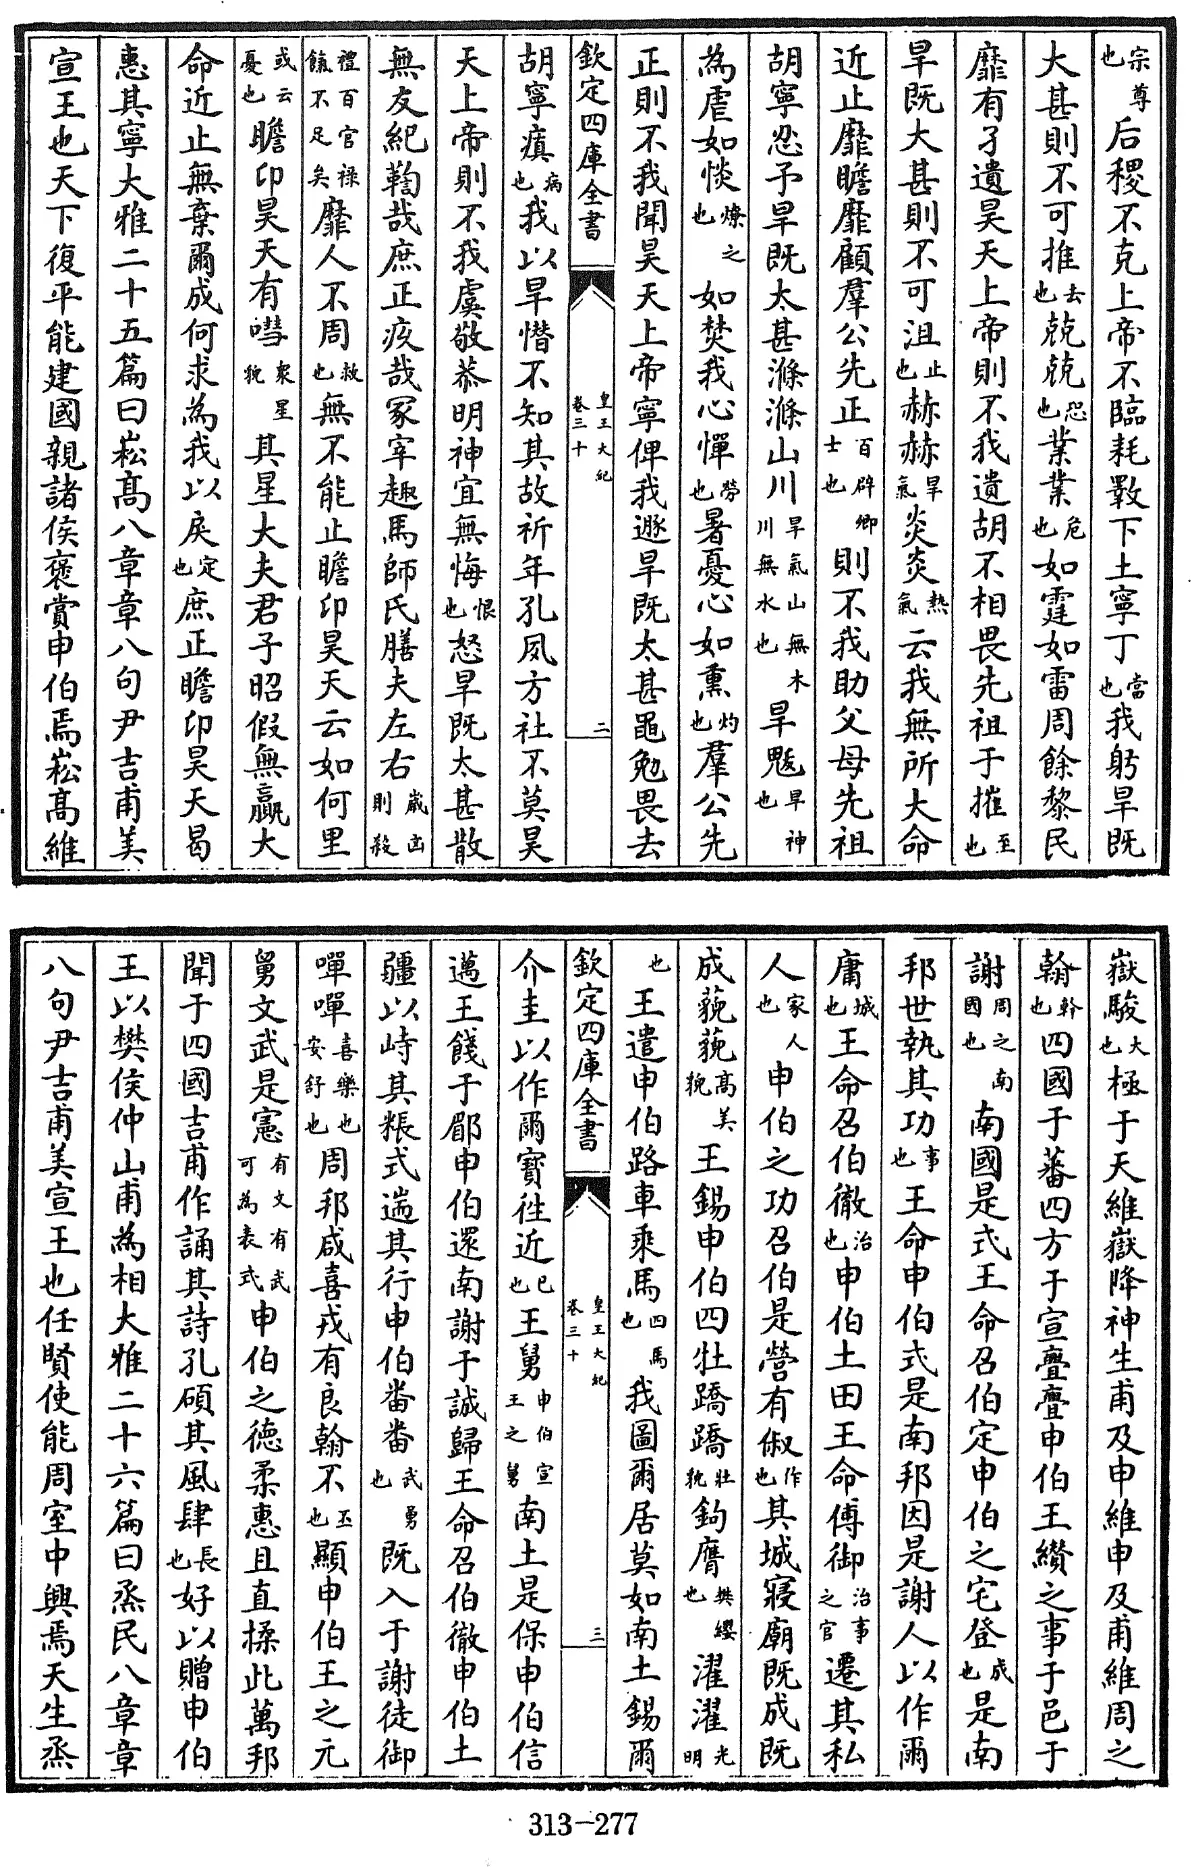 宗尊也后稷不克上帝不臨耗斁下土寧丁當也我躬旱既
大甚則不可推去也兢兢恐也業業危也如霆如雷周餘黎民
靡有孑遺昊天上帝則不我遺胡不相畏先祖于摧至也
旱既大甚則不可沮止也赫赫旱氣炎炎熱氣云我無所大命
近止靡瞻靡顧羣公先正百辟卿士也則不我助父母先祖
胡寧忍予旱既太甚滌滌山川旱氣山無木川無水也旱魃旱神也
為虐如惔燎之也如焚我心憚勞也暑憂心如熏灼也羣公先
正則不我聞昊天上帝寧俾我遯旱既太甚黽勉畏去
欽定四庫全書 皇王大紀卷三十 二
胡寧瘨病也我以旱憯不知其故祈年孔夙方社不莫昊
天上帝則不我虞敬恭明神宜無悔恨也怒旱既太甚散
無友紀鞫哉庶正疚哉冢宰趣馬師氏膳夫左右歲凶則殺
禮百官祿餼不足矣靡人不周救也無不能止瞻卬昊天云如何里
或云憂也瞻卬昊天有嘒衆星貌其星大夫君子昭假無贏大
命近止無棄爾成何求為我以戾定也庶正瞻卬昊天曷
惠其寧大雅二十五篇曰崧高八章章八句尹吉甫美
宣王也天下復平能建國親諸侯褒賞申伯焉崧高維
嶽駿大也極于天維嶽降神生甫及申維申及甫維周之
翰幹也四國于蕃四方于宣亹亹申伯王纘之事于邑于
謝周之南國也南國是式王命召伯定申伯之宅登成也是南
邦世執其功事也王命申伯式是南邦因是謝人以作爾
庸城也王命召伯徹治也申伯土田王命傅御治事之官遷其私
人家人也申伯之功召伯是營有俶作也其城寢廟既成既
成藐藐高美貌王錫申伯四牡蹻蹻壯貌鉤膺樊纓也濯濯光明
也王遣申伯路車乘馬四馬也我圖爾居莫如南土錫爾
欽定四庫全書 皇王大紀卷三十 三
介圭以作爾寶徃近已也王舅申伯宣王之舅南土是保申伯信
邁王餞于郿申伯還南謝于誠歸王命召伯徹申伯土
疆以峙其粻式遄其行申伯番番武勇也既入于謝徒御
嘽嘽喜樂也安舒也周邦咸喜戎有良翰不丕也顯申伯王之元
舅文武是憲有文有武可為表式申伯之德柔惠且直揉此萬邦
聞于四國吉甫作誦其詩孔碩其風肆長也好以贈申伯
王以樊侯仲山甫為相大雅二十六篇曰烝民八章章
八句尹吉甫美宣王也任賢使能周室中興焉天生烝
313-277